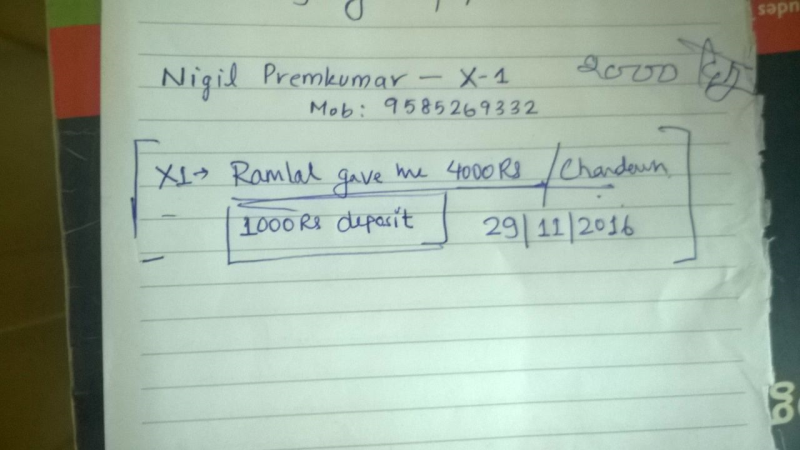 Nigil Premkumar – X-1 2000
Mob: 9585269332
X1→ Ramlal gave me 4000Rs / Chandan
– 1000Rs deposit 29|11|2016